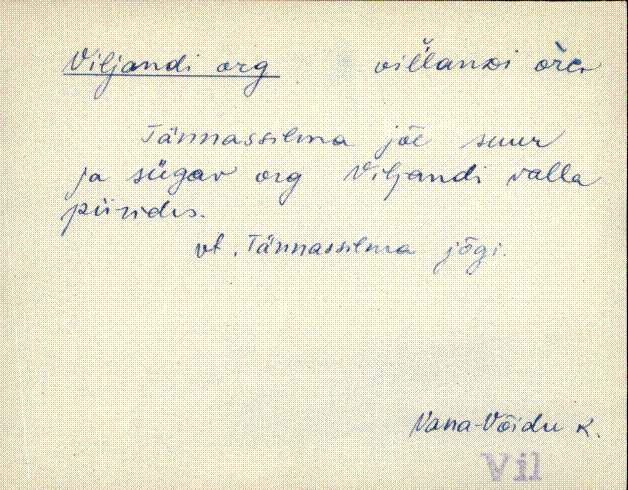 Viljandi org villandi
Tännassilma jõe suur
ja sügav org Viljandi valla
piirides.
vt. Tännassilma jõgi.
Vana-Võidu k.
Vil